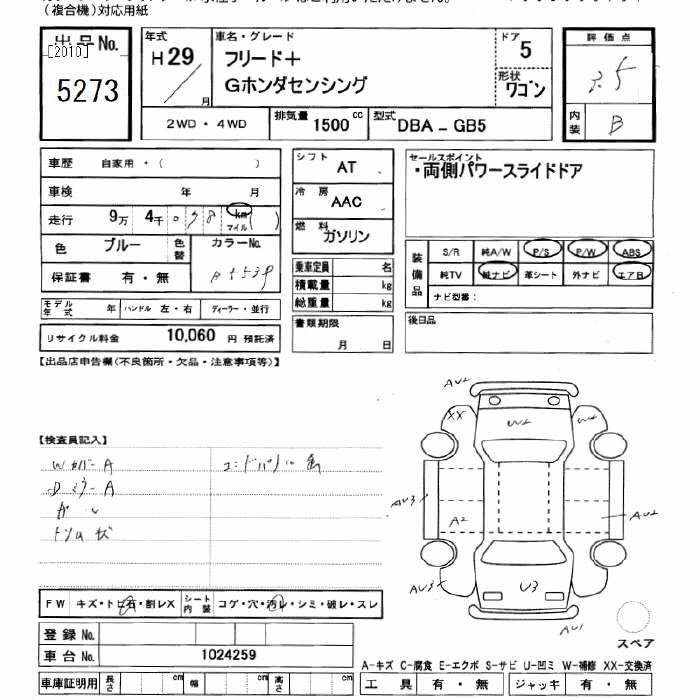 (複合機)対応用紙
出品No.
[2010]
5273
年式
H29
月
車名・グレード
フリード＋
Gホンダセンシング
ドア
5
形状
ワゴン
2WD・4WD
排気量
1500 cc
型式
DBA－GB5
評価点
3.5
内装
B
車歴 自家用・( )
車検 年 月
走行 9万 4千 0 9 8 km マイル ( )
色 ブルー 色替 カラーNo.
B553P
保証書 有・無
モデル年式 年 ハンドル 左・右 ディーラー・並行
リサイクル料金 10,060 円 預託済
シフト AT
冷房 AAC
燃料 ガソリン
乗車定員 名
積載量 kg
総重量 kg
書類期限
月 日
セールスポイント
・両側パワースライドドア
装備品
S/R 純A/W P/S P/W ABS
純TV 純ナビ 革シート 外ナビ エアB
ナビ型番：
後日品
【出品店申告欄(不良箇所・欠品・注意事項等)】
【検査員記入】
Wカバー A
Dミラー A
ガ
AU2
XX
W2
AU3
A2
AU2
AU3
U3
AU1
スペア
FW キズ・トビ石・割レX シート内装 コゲ・穴・汚レ・シミ・破レ・スレ
登録No.
車台No. 1024259
車庫証明用 長さ cm 幅 cm 高さ cm
A-キズ C-腐食 E-エクボ S-サビ U-凹ミ W-補修 XX-交換済
工具 有・無 ジャッキ 有・無